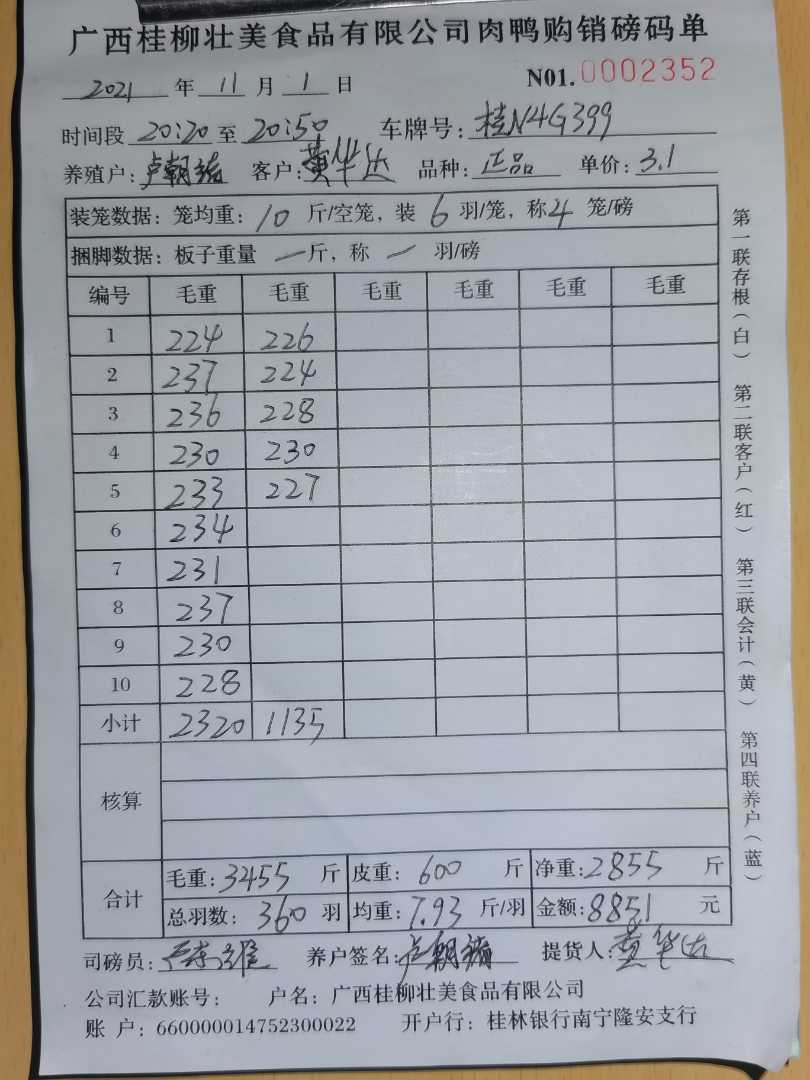 广西桂柳壮美食品有限公司肉鸭购销磅码单
2021 年 11 月 1 日 N01. 0002352
时间段 20:20 至 20:50 车牌号: 桂N4G399
养殖户: 卢朝 客户: 黄华达 品种: 正品 单价: 3.1
装笼数据: 笼均重: 10 斤/空笼, 装 6 羽/笼, 称 4 笼/磅
捆脚数据: 板子重量 一 斤, 称 一 羽/磅
编号 毛重 毛重 毛重 毛重 毛重 毛重
1 224 226
2 237 224
3 236 228
4 230 230
5 233 227
6 234
7 231
8 237
9 230
10 228
小计 2320 1135
核算
合计
毛重: 3455 斤 皮重: 600 斤 净重: 2855 斤
总羽数: 360 羽 均重: 7.93 斤/羽 金额: 8851 元
司磅员: 养户签名: 卢朝 提货人: 黄华达
公司汇款账号: 户名: 广西桂柳壮美食品有限公司
账 户: 660000014752300022 开户行: 桂林银行南宁隆安支行
第一联存根(白) 第二联客户(红) 第三联会计(黄) 第四联养户(蓝)